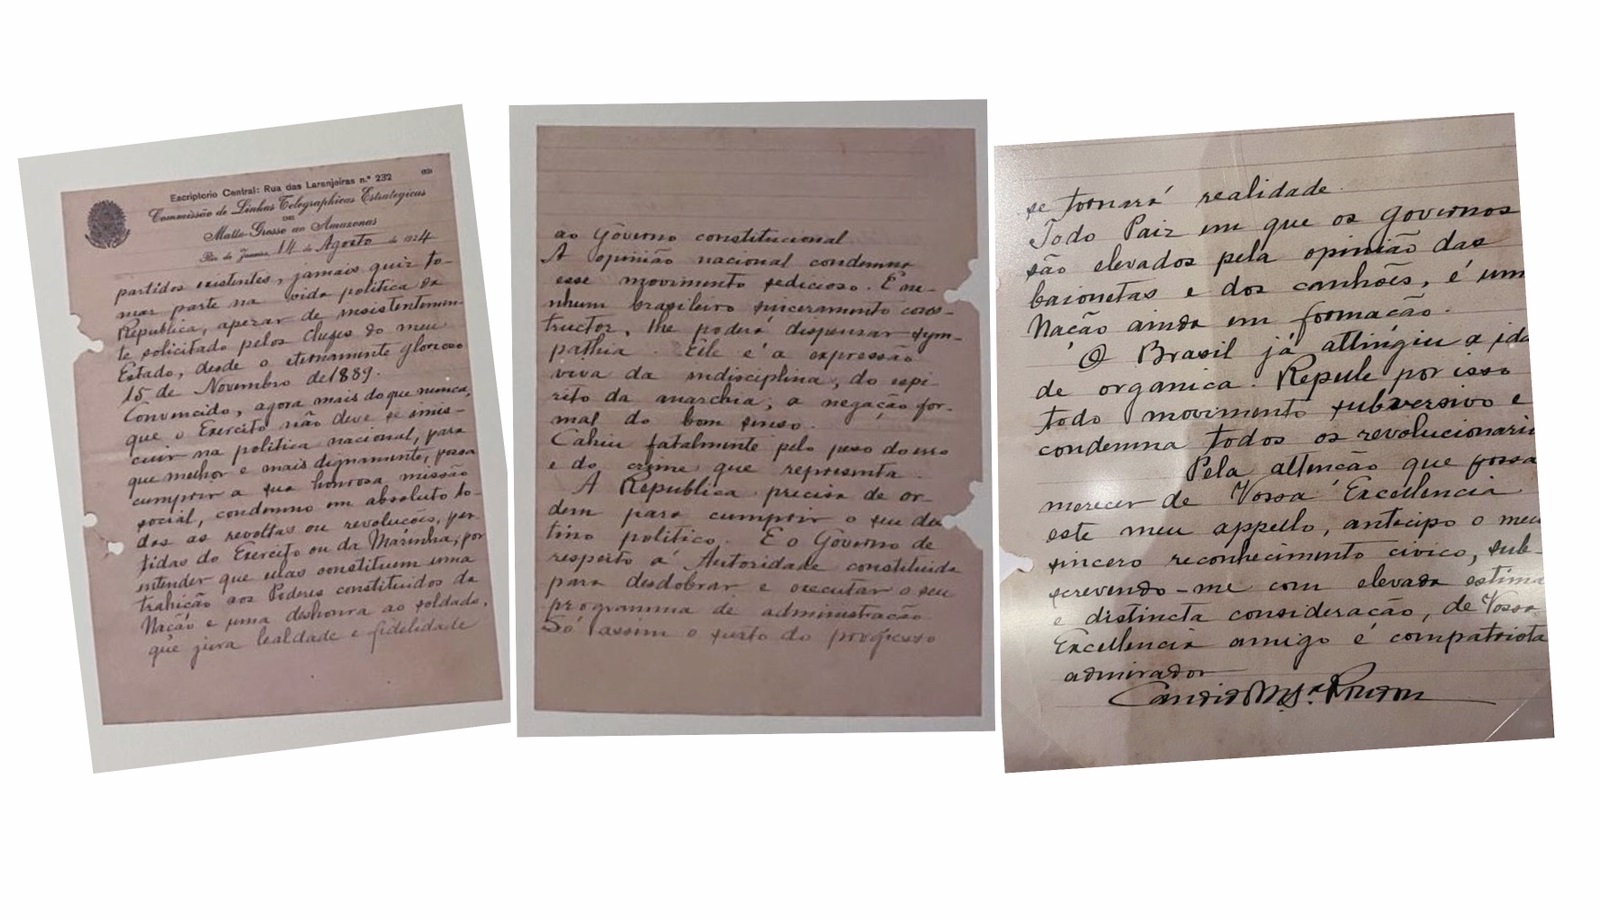 Escriptorio Central: Rua das Laranjeiras n.º 232
Commissão de Linhas Telegraphicas Estrategicas
DE
Matto-Grosso ao Amazonas
Rio de Janeiro, 14 de Agosto de 1924
partidos existentes, jamais quiz to-
mar parte na vida politica da
Republica, apezar de insistentemen-
te solicitado pelos Chefes do meu
Estado, desde o eternamente glorioso
15 de Novembro de 1889.
Convencido, agora mais do que nunca,
que o Exercito não deve se immis-
cuir na politica nacional, para
que melhor e mais dignamente, possa
cumprir a sua honrosa missão
social, condemno em absoluto to-
das as revoltas ou revoluções, par-
tidas do Exercito ou da Marinha, por
entender que ellas constituem uma
trahição aos Poderes constituidos da
Nação e uma deshonra ao soldado,
que jura lealdade e fidelidade
ao Governo constitucional
A opinião nacional condemna
esse movimento sedicioso. E ne-
nhum brasileiro sinceramente cons-
tructor, lhe poderá dispensar sym-
pathia. Elle é a expressão
viva da indisciplina, do espi-
rito da anarchia; a negação for-
mal do bom senso.
Cahiu fatalmente pelo peso do erro
e do crime que representa.
A Republica precisa de or-
dem para cumprir o seu des
tino politico. E o Governo de
respeito á Autoridade constituida
para desdobrar e executar o seu
programma de administração
Só assim o surto do progresso
se tornará realidade.
Todo Paiz em que os governos
são elevados pela opinião das
baionetas e dos canhões, é uma
Nação ainda em formação.
O Brasil já attingiu a ida
de organica. Repele por isso
todo movimento subversivo e
condemna todos os revolucionari
Pela attenção que possa
merecer de Vossa Excellencia
este meu appello, antecipo o meu
sincero reconhecimento civico, sub-
screvendo-me com elevada estima
e distincta consideração, de Vossa
Excellencia amigo e compatriota
admirador
Candido M. S. Rondon